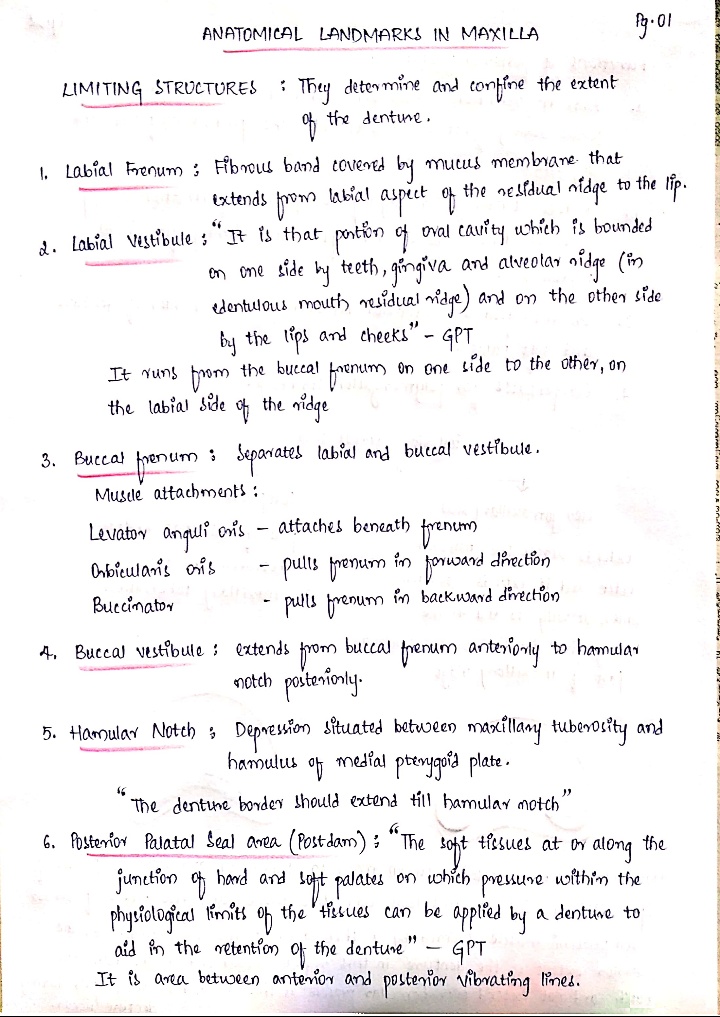 Pg.01
ANATOMICAL LANDMARKS IN MAXILLA
LIMITING STRUCTURES : They determine and confine the extent
of the denture.
1. Labial Frenum : Fibrous band covered by mucus membrane that
extends from labial aspect of the residual ridge to the lip.
2. Labial Vestibule : "It is that portion of oral cavity which is bounded
on one side by teeth, gingiva and alveolar ridge (in
edentulous mouth residual ridge) and on the other side
by the lips and cheeks" - GPT
It runs from the buccal frenum on one side to the other, on
the labial side of the ridge
3. Buccal frenum : Separates labial and buccal vestibule.
Muscle attachments :
Levator anguli oris - attaches beneath frenum
Orbicularis oris - pulls frenum in forward direction
Buccinator - pulls frenum in backward direction
4. Buccal vestibule : extends from buccal frenum anteriorly to hamular
notch posteriorly.
5. Hamular Notch : Depression situated between maxillary tuberosity and
hamulus of medial pterygoid plate.
"The denture border should extend till hamular notch"
6. Posterior Palatal Seal area (Postdam) : "The soft tissues at or along the
junction of hard and soft palates on which pressure within the
physiological limits of the tissues can be applied by a denture to
aid in the retention of the denture" - GPT
It is area between anterior and posterior vibrating lines.